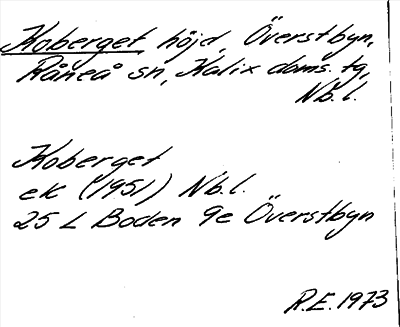 Koberget höjd, Överstbyn,
Råneå sn, Kalix doms. tg,
Nb.l.
Koberget
ek (1951) Nb.l.
25 L Boden 9e Överstbyn
R.E. 1973